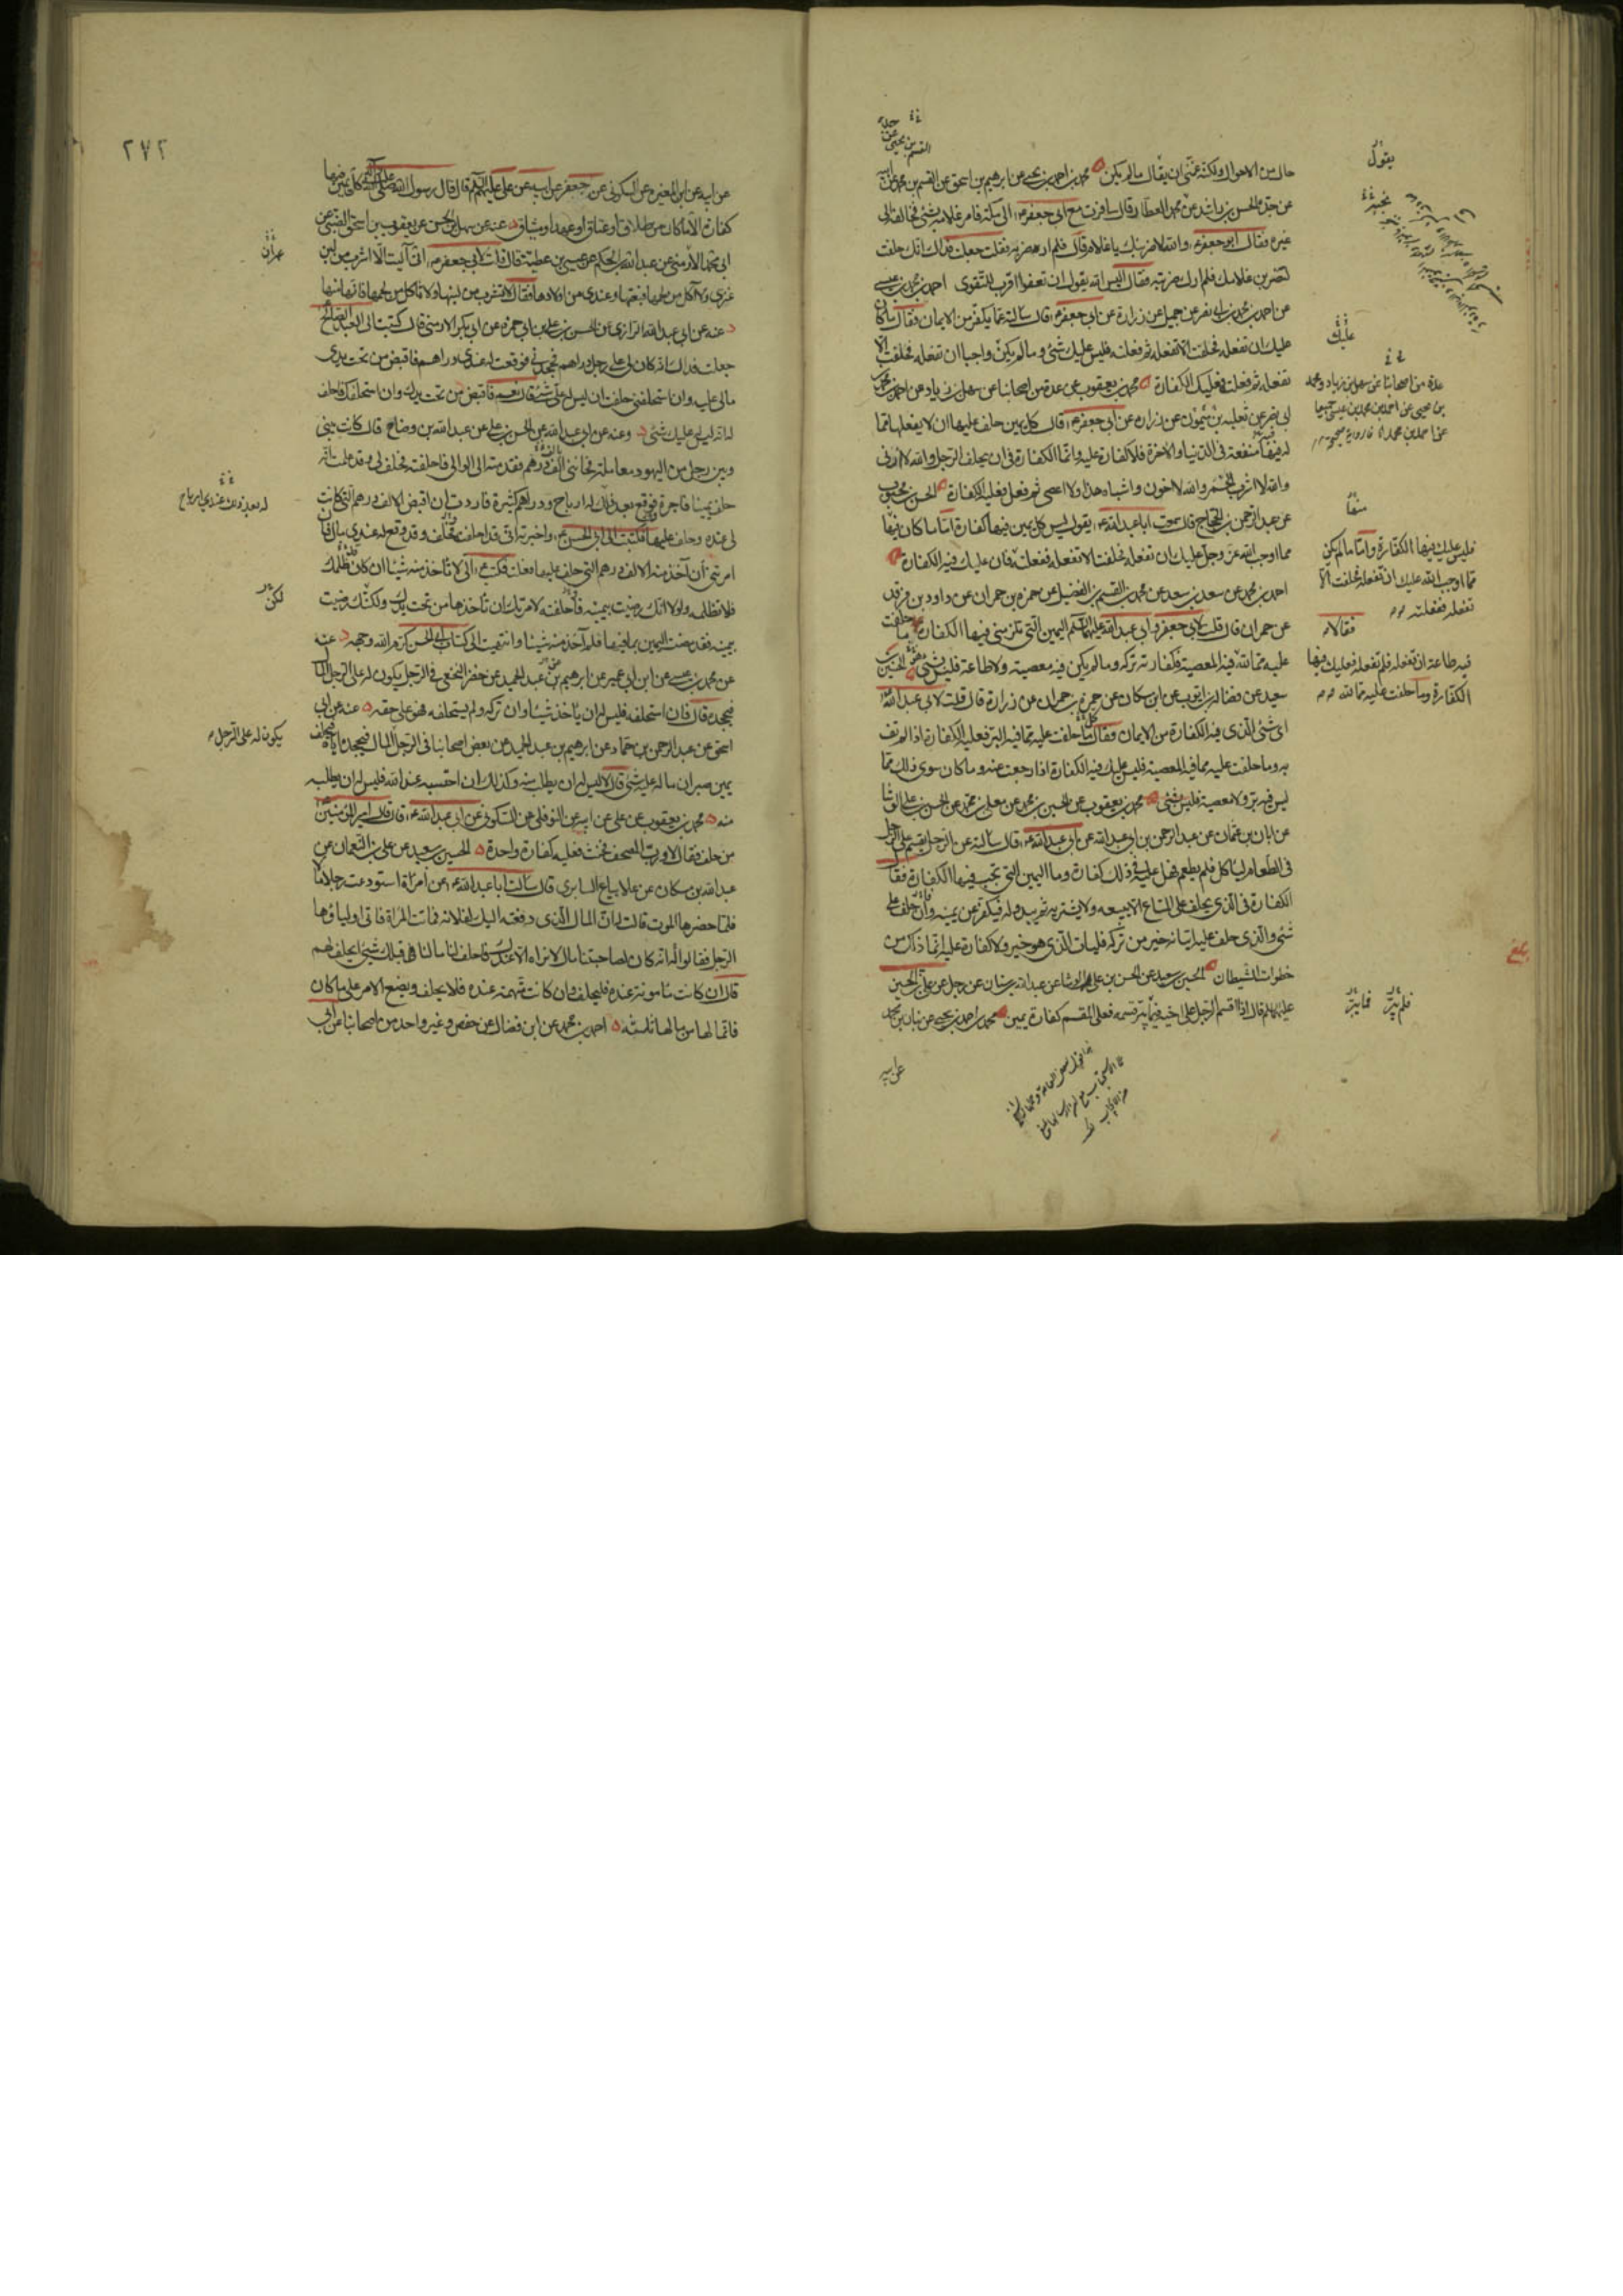 حال من الاحوال ولكنه عنى ان يقال ما لم يكن محمد بن احمد بن يحيى عن ابرهيم بن اسحق عن القسم بن محمد عن ابيه
عن جده الحسن بن راشد عن محمد العطار قال سافرت مع ابي جعفر ع الى مكة فامر غلامه بشئ فخالفه الى
غيره فقال ابو جعفر ع والله لاضربنك يا غلام قال فلم اره ضربه فقلت جعلت فداك انك حلفت
لتضربن غلامك فلم ارك ضربته فقال اليس الله يقول ان تعفوا اقرب للتقوى احمد بن محمد بن عيسى
عن احمد بن محمد بن ابي نصر عن جميل عن زرارة عن ابي جعفر ع قال سالته عما يكفر من الايمان فقال ما كان
عليك ان تفعله فحلفت الا تفعله ثم فعلته فليس عليك شئ وما لم يكن واجبا ان تفعله فحلفت الا
تفعله ثم فعلت فعليك الكفارة محمد بن يعقوب عن عدة من اصحابنا عن سهل بن زياد عن احمد بن محمد
ابي نصر عن ثعلبه بن ميمون عن زراره عن ابي جعفر ع قال كل يمين حلف عليها ان لا يفعلها مما
له فيها منفعة في الدنيا والاخرة فلا كفارة عليه وانما الكفارة في ان يحلف الرجل والله لا ازني
والله لا اشرب الخمر والله لا اخون واشباه هذا ولا اعصى ثم فعل فعليه الكفارة الحسن بن محبوب
عن عبد الرحمن بن الحجاج قال سمعت ابا عبد الله ع يقول ليس كل يمين فيها كفارة اما ما كان منها
مما اوجب الله عز وجل عليك ان تفعله فحلفت الا تفعله ففعلته فان عليك فيه الكفارة
احمد بن محمد عن سعد بن سعد عن محمد بن القسم بن الفضيل عن حمزه بن حمران عن داود بن فرقد
عن حمران قال قلت لابي جعفر وابي عبد الله عليهما السلم اليمين التي تلزمني فيها الكفارة ما حلفت
عليه مما لله فيه المعصية فكفارته تركه وما لم يكن فيه معصية ولا طاعة فليس بشئ الحسين بن
سعيد عن فضاله بن ايوب عن ابن مسكان عن حمزه بن حمران عن زرارة قال قلت لابي عبد الله ع
اي شئ الذي فيه الكفارة من الايمان فقال ما حلفت عليه مما فيه البر فعليه الكفارة اذا لم تف
به وما حلفت عليه مما فيه المعصية فليس عليك فيه الكفارة اذا رجعت عنه وما كان سوى ذلك مما
ليس فيه بر ولا معصية فليس بشئ محمد بن يعقوب عن الحسين بن محمد عن معلى بن محمد عن الحسن بن علي الوشا
عن ابان بن عثمان عن عبد الرحمن بن ابي عبد الله عن ابي عبد الله ع قال سالته عن الرجل يقسم على الرجل
في الطعام لياكل فلم يطعم هل عليه في ذلك كفارة وما اليمين التي تجب فيها الكفارة فقال
الكفارة في الذي يحلف على المتاع الا يبيعه ولا يشتريه ثم يبدو له فيكفر عن يمينه وان حلف على
شئ والذي حلف عليه اتيانه خير من تركه فليات الذي هو خير ولا كفارة عليه انما ذلك من
خطوات الشيطان الحسين بن سعيد عن الحسن بن علي الوشا عن عبد الله بن سنان عن رجل عن علي بن الحسين
عليهما السلم قال اذا اقسم الرجل على اخيه فلم يبر قسمه فعلى المقسم كفارة يمين محمد بن احمد بن يحيى عن بنان بن محمد
عن ابيه
يقول
عليك
عدة من اصحابنا عن سهل بن زياد ومحمد
بن يحيى عن احمد بن محمد بن عيسى جميعا
فليس عليك فيها الكفارة واما ما لم يكن
مما اوجب الله عليك ان تفعله فحلفت الا
تفعله ففعلته
فقالا
فيه طاعة ان تفعله فلم تفعله فعليك فيها
الكفارة وما حلفت عليه مما لله
فلم يبر فما يبر
بلغ
٢٧٢
عن ابيه عن ابن المغيره عن السكوني عن جعفر عن ابيه عن علي عليهم السلم قال قال رسول الله صلى الله عليه واله كل يمين فيها
كفارة الا ما كان من طلاق او عتاق او عهد او ميثاق عنه عن سهل بن الحسن عن يعقوب بن اسحق الضبي عن
ابي محمد الارمني عن عبد الله بن الحكم عن عيسى بن عطية قال قلت لابي جعفر ع اني آليت الا اشرب من لبن
عنزي ولا آكل من لحمها فبعتها وعندي من اولادها فقال لا تشرب من لبنها ولا تاكل من لحمها فانها منها
عنه عن ابي عبد الله الرازي عن الحسن بن علي بن ابي حمزه عن ابي بكر الارمني قال كتبت الى العبد الصالح
جعلت فداك انه كان لي على رجل دراهم فجحدني فوقعت له عندي دراهم فاقبض من تحت يدي
مالي عليه وان استحلفني حلفت ان ليس له علي شئ قال نعم فاقبض من تحت يدك وان استحلفك فاحلف
له انه ليس له عليك شئ وعنه عن ابي عبد الله عن الحسن بن علي عن عبد الله بن وضاح قال كانت بيني
وبين رجل من اليهود معاملة فخانني الف درهم فقدمته الى الوالي فاحلفته فحلف لي وقد علمت انه
حلف يمينا فاجرة فوقع بعد ذلك له ارباح ودراهم كثيرة فاردت ان اقبض الالف درهم التي كانت
لي عنده وحلف عليها فكتبت الى ابي الحسن ع واخبرته اني قد احلفته فحلف وقد وقع له عندي مال فان
امرتني ان آخذ منه الالف درهم التي حلف عليها فعلت فكتب ع الي لا تاخذ منه شيئا ان كان ظلمك
فلا تظلمه ولولا انك رضيت بيمينه فاحلفته لامرتك ان تاخذها من تحت يدك ولكنك رضيت
بيمينه فقد مضت اليمين بما فيها فلم آخذ منه شيئا وانتهيت الى كتاب ابي الحسن كرم الله وجهه عنه
عن محمد بن عيسى عن ابن ابي عمير عن ابرهيم بن عبد الحميد عن خضر النخعي في الرجل يكون له على الرجل المال
فيجحده قال فان استحلفه فليس له ان ياخذ شيئا وان تركه ولم يستحلفه فهو على حقه عنه عن ابي
اسحق عن عبد الرحمن بن حماد عن ابرهيم بن عبد الحميد عن بعض اصحابنا في الرجل المال فيجحده اياه فيحلف
يمين صبر ان ماله عليه شئ قال لا ليس له ان يطلب منه وكذلك ان احتسبه عند الله فليس له ان يطلبه
منه محمد بن يعقوب عن علي عن ابيه عن النوفلي عن السكوني عن ابي عبد الله ع قال قال امير المؤمنين ع
من حلف فقال لا ورب المصحف فحنث فعليه كفارة واحدة الحسين بن سعيد عن علي بن النعمان عن
عبد الله بن مسكان عن علا بياع السابري قال سالت ابا عبد الله ع عن امرأة استودعت رجلا مالا
فلما حضرها الموت قالت له ان المال الذي دفعته اليك لفلانه فماتت المرأة فاتى اولياؤها
الرجل فقالوا له انه كان لصاحبتنا مال لا نراه الا عندك فاحلف لنا ما لنا قبلك شئ ايحلف لهم
قال ان كانت مأمونة عنده فليحلف وان كانت متهمة عنده فلا يحلف ويضع الامر على ما كان
فانما لها من مالها ثلثه احمد بن محمد عن ابن فضال عن حفص وغير واحد من اصحابنا عن ابي
لكن
يكون له على الرجل